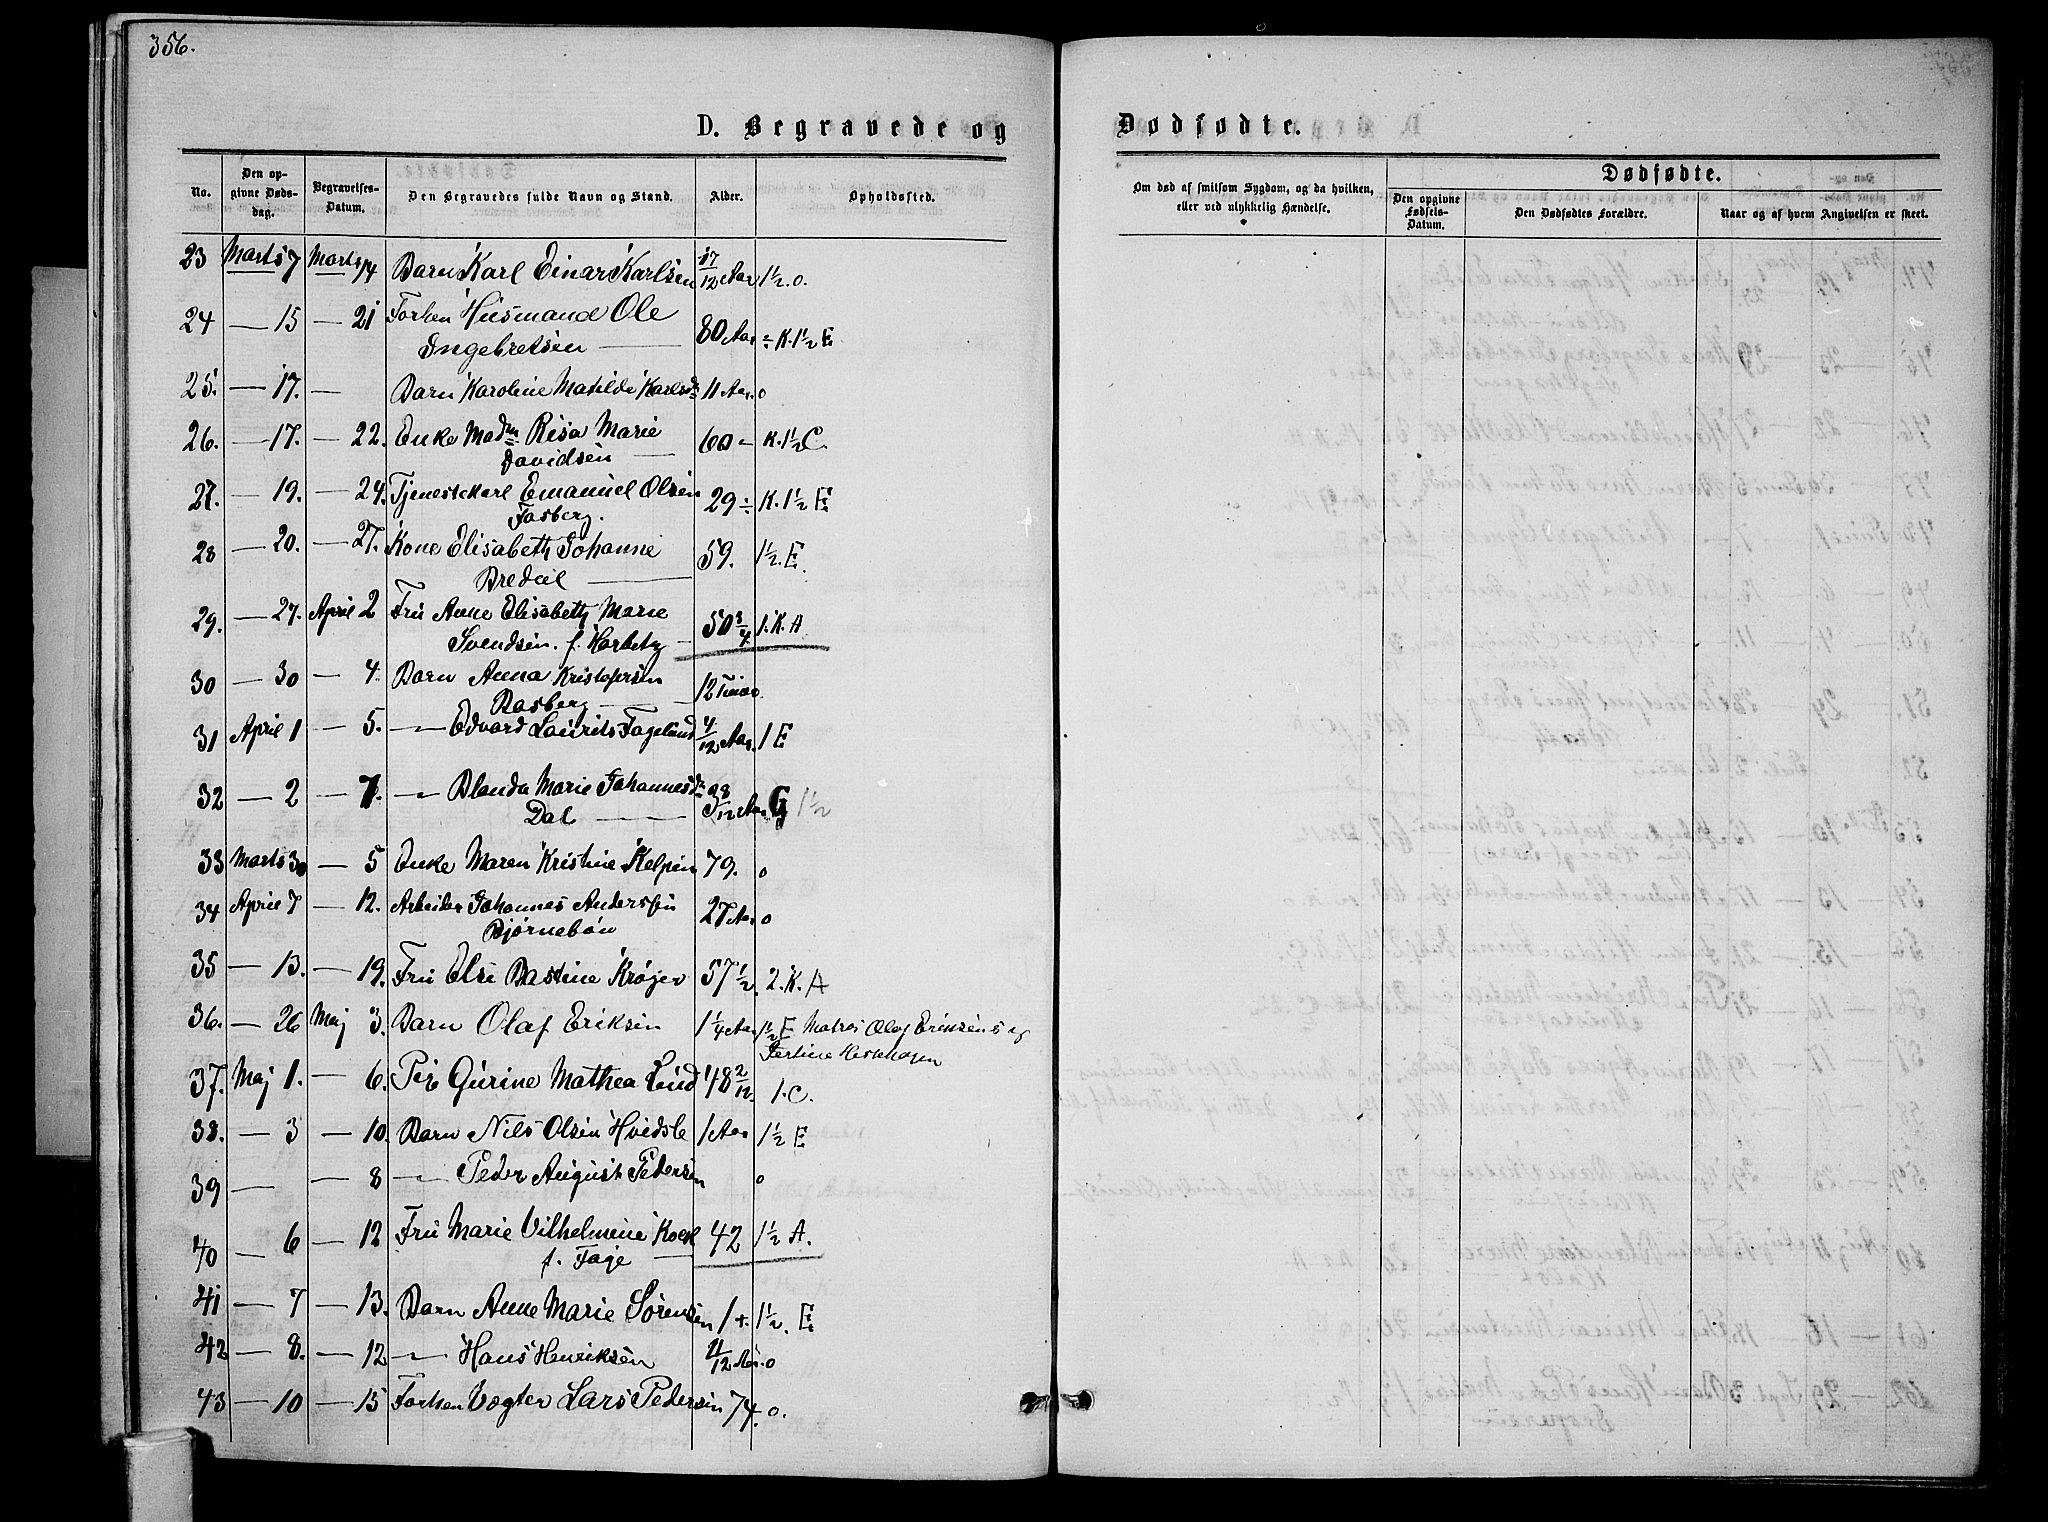 356.
D. Begravede og Dødfødte.
No.
Den opgivne Dødsdag.
Begravelses-Datum.
Den Begravedes fulde Navn og Stand.
Alder.
Opholdssted.
Om død af smitsom Sygdom, og da hvilken, eller ved ulykkelig Hændelse.
Dødfødte.
Den opgivne Fødsels-Datum.
Den Dødfødtes Forældre.
Naar og af hvem Angivelsen er skeet.
23 Marts 7 Marts 14 Barn Karl Einar Karlsen 17/12 Aar 1½.o.
24 — 15 — 21 Forhen Husmand Ole
Ingebretsen — 80 Aar ÷ K.1½ E
25. — 17. — Barn Karoline Matilde Karlsdr 11 Aar. o
26. — 17. — 22. Enke Madm Risa Marie
Davidsen — 60 — K.1½ C.
27. — 19. — 24. Tjenestekarl Emanuel Olsen
Fosberg. 29 ÷ K.1½ E
28 — 20. — 27. Kone Elisabeth Johanne
Bredal — 59. 1½. E.
29. — 27. April 2 Fru Anne Elisabeth Marie
Svendsen. f. Horbety — 50 ¾ 1.K.A
30 — 30 — 4. Barn Anna Kristofersen
Basberg — 12 Timer o.
31 April 1 — 5. — Edvard Laurits Fageland 4/12 Aar. 1 E
32 — 2 — 7. — Blanda Marie Johannesdr
Dal — 3 8/12 Aar G 1½
33 Marts 30 — 5 Enke Maren Kristine Kelpin 79. o
34 April 7 — 12. Arbeider Johannes Anderssen
Bjørnebøn 27 Aar o
35 — 13. — 19. Fru Else Bastine Krøger 57 ½. 2.K.A
36. — 26 Maj 3. Barn Olaf Eriksen 1 ¼ Aar 1½ E Matros Olaf Eriksens og
37. Maj 1. — 6. Pige Gurine Mathea Lund 48 2/12. 1.C.
38. — 3 — 10. Barn Nils Olsen Hvidsle 1 Aar 1½ E
39 — — 8 — Peder August Pedersen o
40 — 6 — 12 Fru Marie Vilhelmine Koch
f. Faye — 42 1½ A.
41 — 7 — 13. Barn Anne Marie Sørensen 1 1½. E
42 — 8. — 12 — Hans Henriksen 11/12 Aar. o
43 — 10 — 15 Forhen Vogter Lars Pedersen 74. o.